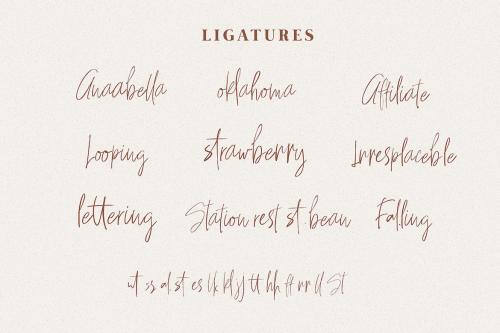 LIGATURES
Anaabella oklahoma Affiliate
Looping strawberry Irresplaceble
lettering Station rest st. beau Falling
wt ss al st es lk kl jJ tt hh ff rr ll St